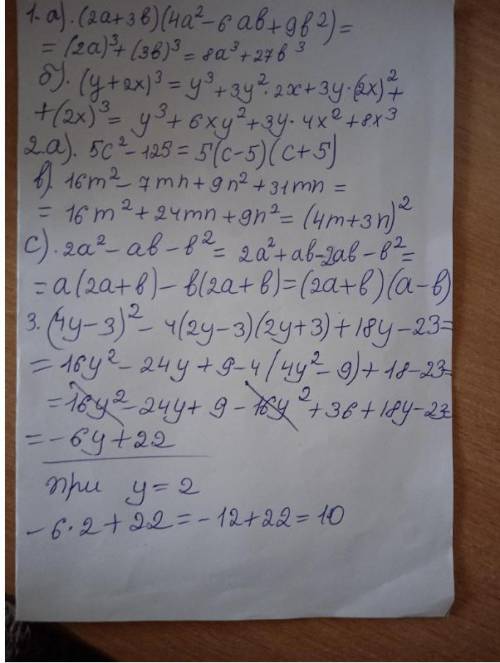 1. а). (2а+3в)(4а²-6ав+9в²)=
= (2а)³+(3в)³=8а³+27в³
б). (y+2x)³=y³+3y²·2x+3y·(2x)²+
+(2x)³= y³+6xy²+3y·4x²+8x³
2.а). 5c²-125=5(c-5)(c+5)
в). 16m²-7mn+9n²+31mn=
= 16m²+24mn+9n²=(4m+3n)²
с). 2а²-ав-в²= 2а²+ав-2ав-в²=
=а(2а+в)-в(2а+в)=(2а+в)(а-в)
3. (4y-3)²-4(2y-3)(2y+3)+18y-23=
= 16y²-24y+9-4(4y²-9)+18-23=
=16y²-24y+9-16y²+36+18y-23
=-6y+22
при y=2
-6·2+22=-12+22=10